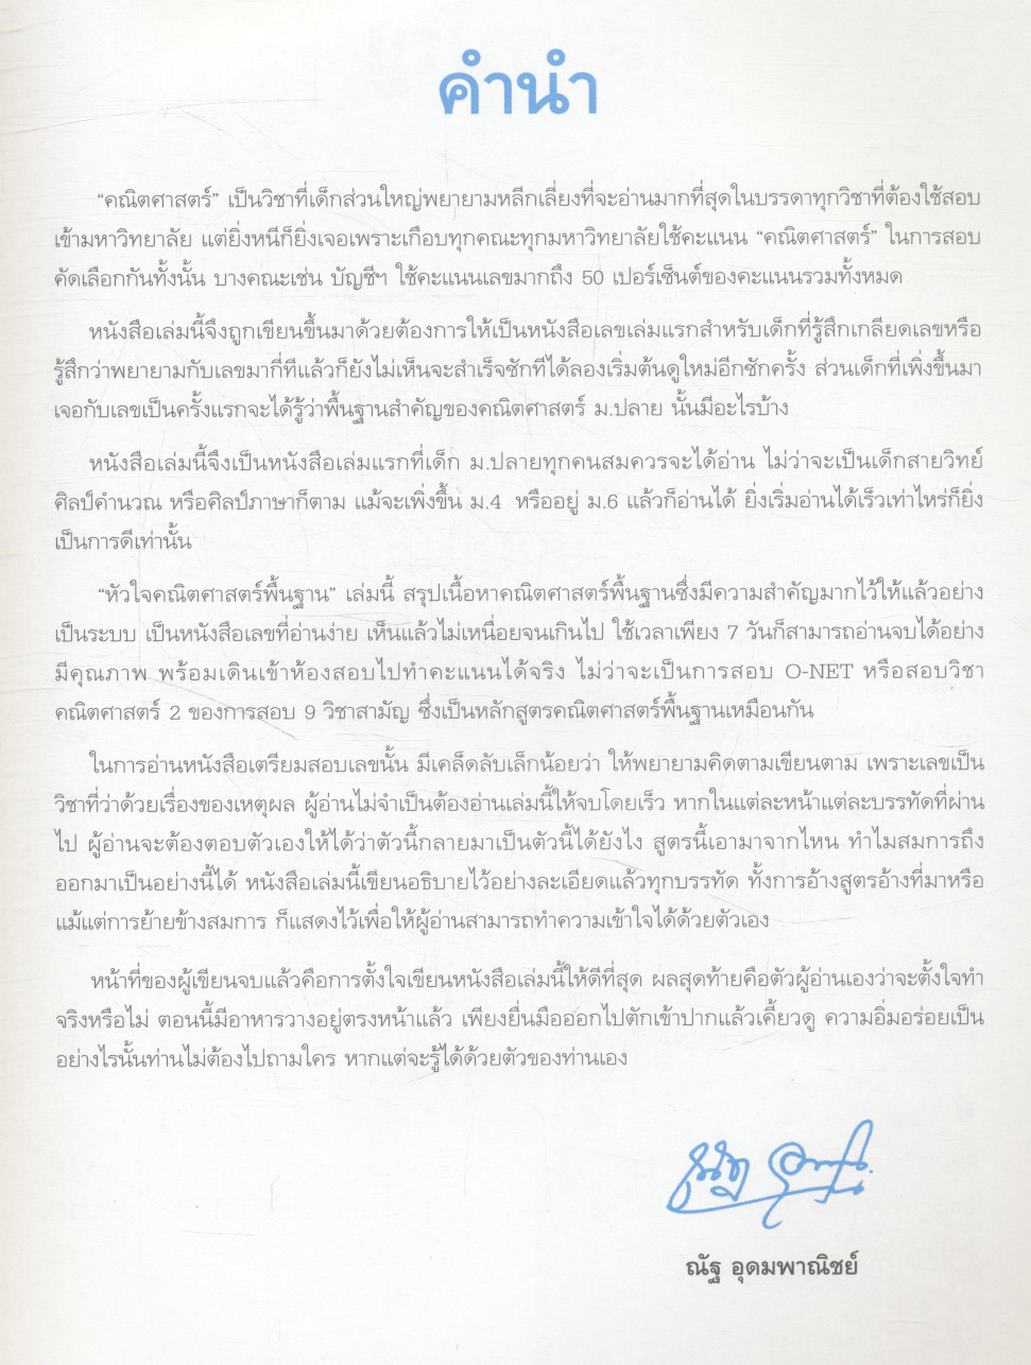 คำนำ
“คณิตศาสตร์” เป็นวิชาที่เด็กส่วนใหญ่พยายามหลีกเลี่ยงที่จะอ่านมากที่สุดในบรรดาทุกวิชาที่ต้องใช้สอบ
เข้ามหาวิทยาลัย แต่ยิ่งหนีก็ยิ่งเจอเพราะเกือบทุกคณะทุกมหาวิทยาลัยใช้คะแนน “คณิตศาสตร์” ในการสอบ
คัดเลือกกันทั้งนั้น บางคณะเช่น บัญชีฯ ใช้คะแนนเลขมากถึง 50 เปอร์เซ็นต์ของคะแนนรวมทั้งหมด
หนังสือเล่มนี้จึงถูกเขียนขึ้นมาด้วยต้องการให้เป็นหนังสือเลขเล่มแรกสำหรับเด็กที่รู้สึกเกลียดเลขหรือ
รู้สึกว่าพยายามกับเลขมากี่ทีแล้วก็ยังไม่เห็นจะสำเร็จซักทีได้ลองเริ่มต้นดูใหม่อีกซักครั้ง ส่วนเด็กที่เพิ่งขึ้นมา
เจอกับเลขเป็นครั้งแรกจะได้รู้ว่าพื้นฐานสำคัญของคณิตศาสตร์ ม.ปลาย นั้นมีอะไรบ้าง
หนังสือเล่มนี้จึงเป็นหนังสือเล่มแรกที่เด็ก ม.ปลายทุกคนสมควรจะได้อ่าน ไม่ว่าจะเป็นเด็กสายวิทย์
ศิลป์คำนวณ หรือศิลป์ภาษาก็ตาม แม้จะเพิ่งขึ้น ม.4 หรืออยู่ ม.6 แล้วก็อ่านได้ ยิ่งเริ่มอ่านได้เร็วเท่าไหร่ก็ยิ่ง
เป็นการดีเท่านั้น
“หัวใจคณิตศาสตร์พื้นฐาน” เล่มนี้ สรุปเนื้อหาคณิตศาสตร์พื้นฐานซึ่งมีความสำคัญมากไว้ให้แล้วอย่าง
เป็นระบบ เป็นหนังสือเลขที่อ่านง่าย เห็นแล้วไม่เหนื่อยจนเกินไป ใช้เวลาเพียง 7 วันก็สามารถอ่านจบได้อย่าง
มีคุณภาพ พร้อมเดินเข้าห้องสอบไปทำคะแนนได้จริง ไม่ว่าจะเป็นการสอบ O-NET หรือสอบวิชา
คณิตศาสตร์ 2 ของการสอบ 9 วิชาสามัญ ซึ่งเป็นหลักสูตรคณิตศาสตร์พื้นฐานเหมือนกัน
ในการอ่านหนังสือเตรียมสอบเลขนั้น มีเคล็ดลับเล็กน้อยว่า ให้พยายามคิดตามเขียนตาม เพราะเลขเป็น
วิชาที่ว่าด้วยเรื่องของเหตุผล ผู้อ่านไม่จำเป็นต้องอ่านเล่มนี้ให้จบโดยเร็ว หากในแต่ละหน้าแต่ละบรรทัดที่ผ่าน
ไป ผู้อ่านจะต้องตอบตัวเองให้ได้ว่าตัวนี้กลายมาเป็นตัวนี้ได้ยังไง สูตรนี้เอามาจากไหน ทำไมสมการถึง
ออกมาเป็นอย่างนี้ได้ หนังสือเล่มนี้เขียนอธิบายไว้อย่างละเอียดแล้วทุกบรรทัด ทั้งการอ้างสูตรอ้างที่มาหรือ
แม้แต่การย้ายข้างสมการ ก็แสดงไว้เพื่อให้ผู้อ่านสามารถทำความเข้าใจได้ด้วยตัวเอง
หน้าที่ของผู้เขียนจบแล้วคือการตั้งใจเขียนหนังสือเล่มนี้ให้ดีที่สุด ผลสุดท้ายคือตัวผู้อ่านเองว่าจะตั้งใจทำ
จริงหรือไม่ ตอนนี้มีอาหารวางอยู่ตรงหน้าแล้ว เพียงยื่นมือออกไปตักเข้าปากแล้วเคี้ยวดู ความอิ่มอร่อยเป็น
อย่างไรนั้นท่านไม่ต้องไปถามใคร หากแต่จะรู้ได้ด้วยตัวของท่านเอง
ณัฐ อุดมพาณิชย์